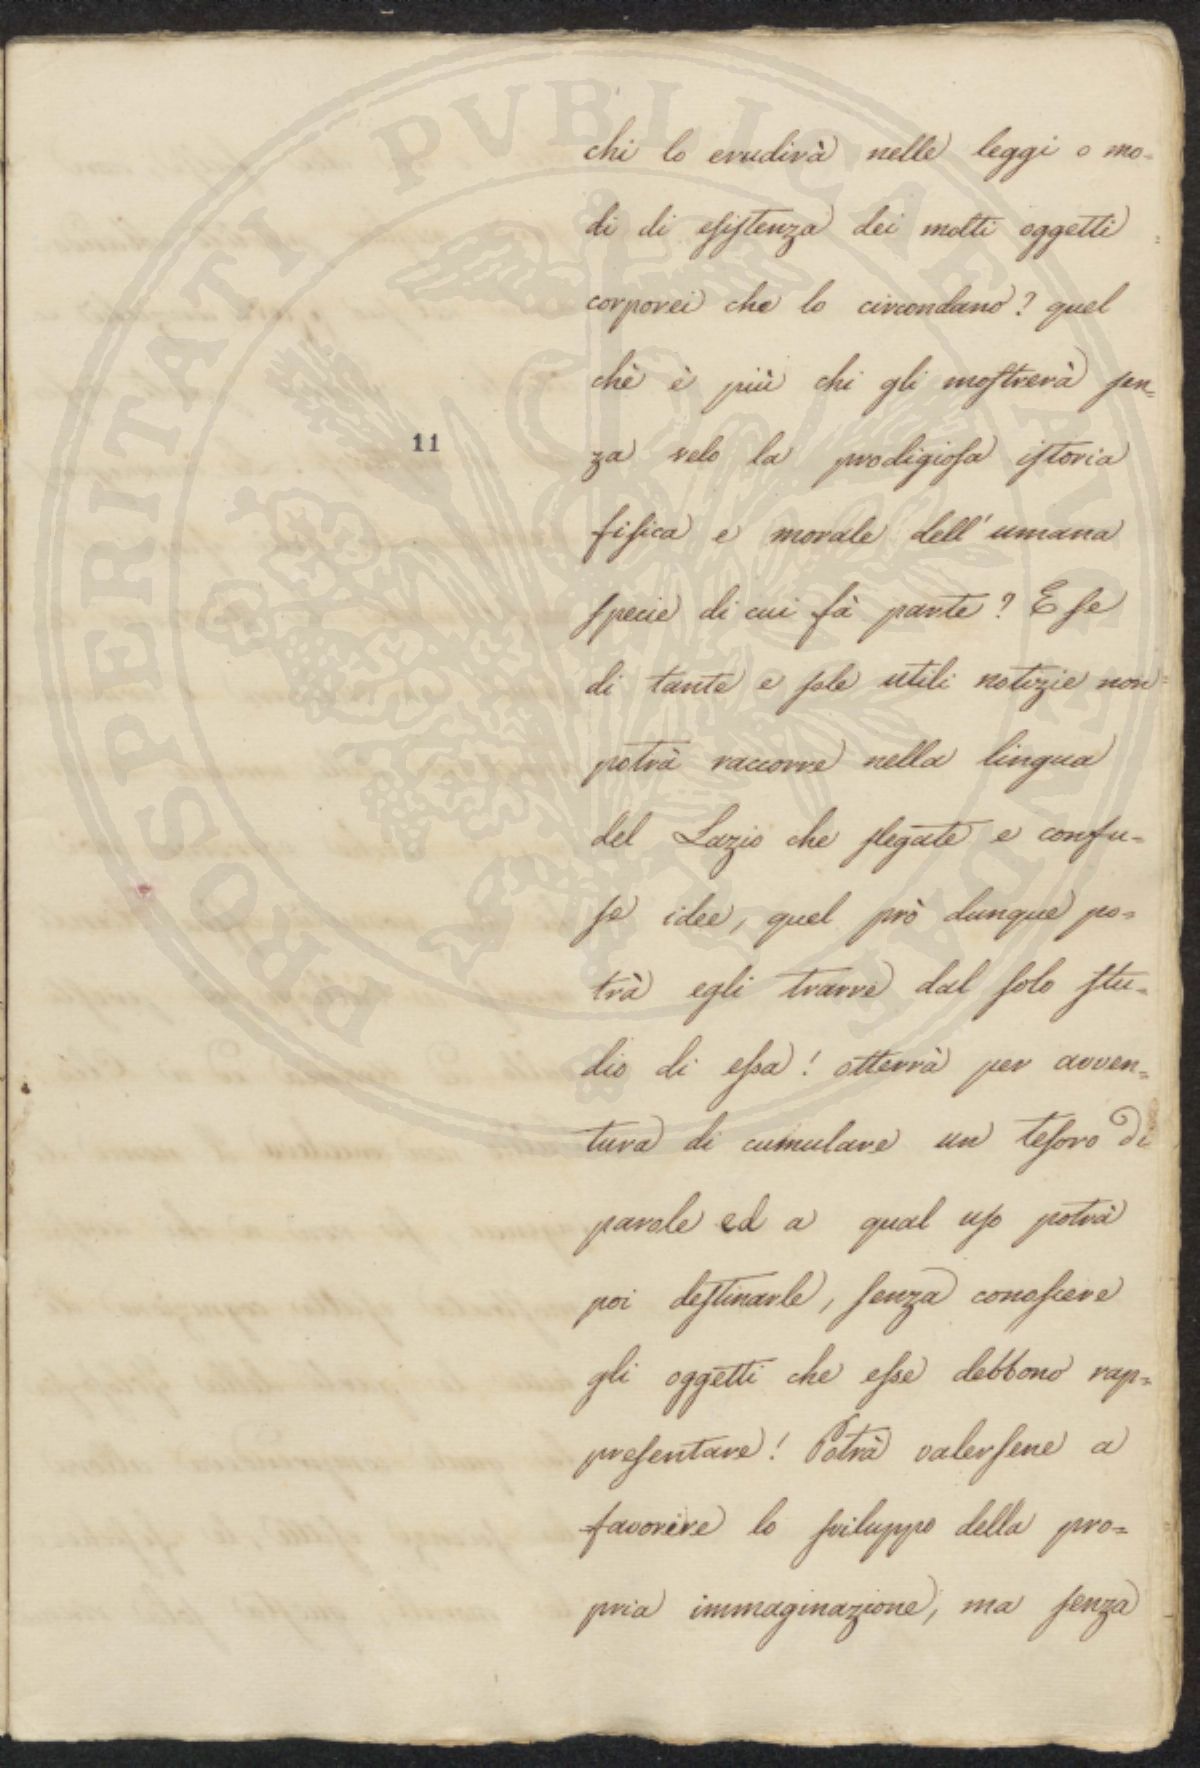 PROSPERITATI PVBLICAE AVGENDAE
11
chi lo erudirà nelle leggi o mo-
di di esistenza dei molti oggetti
corporei che lo circondano? quel
chè è più chi gli mostrerà sen=
za velo la prodigiosa istoria
fisica e morale dell'umana
specie di cui fà parte? E se
di tante e sole utili notizie non
potrà raccorre nella lingua
del Lazio che slegate e confu=
se idee, quel prò dunque po=
trà egli trarre dal solo stu=
dio di essa! otterrà per avven=
tura di cumulare un tesoro di
parole ed a qual uso potrà
poi destinarle, senza conoscere
gli oggetti che esse debbono rap=
presentare! Potrà valersene a
favorire lo sviluppo della pro=
pria immaginazione, ma senza